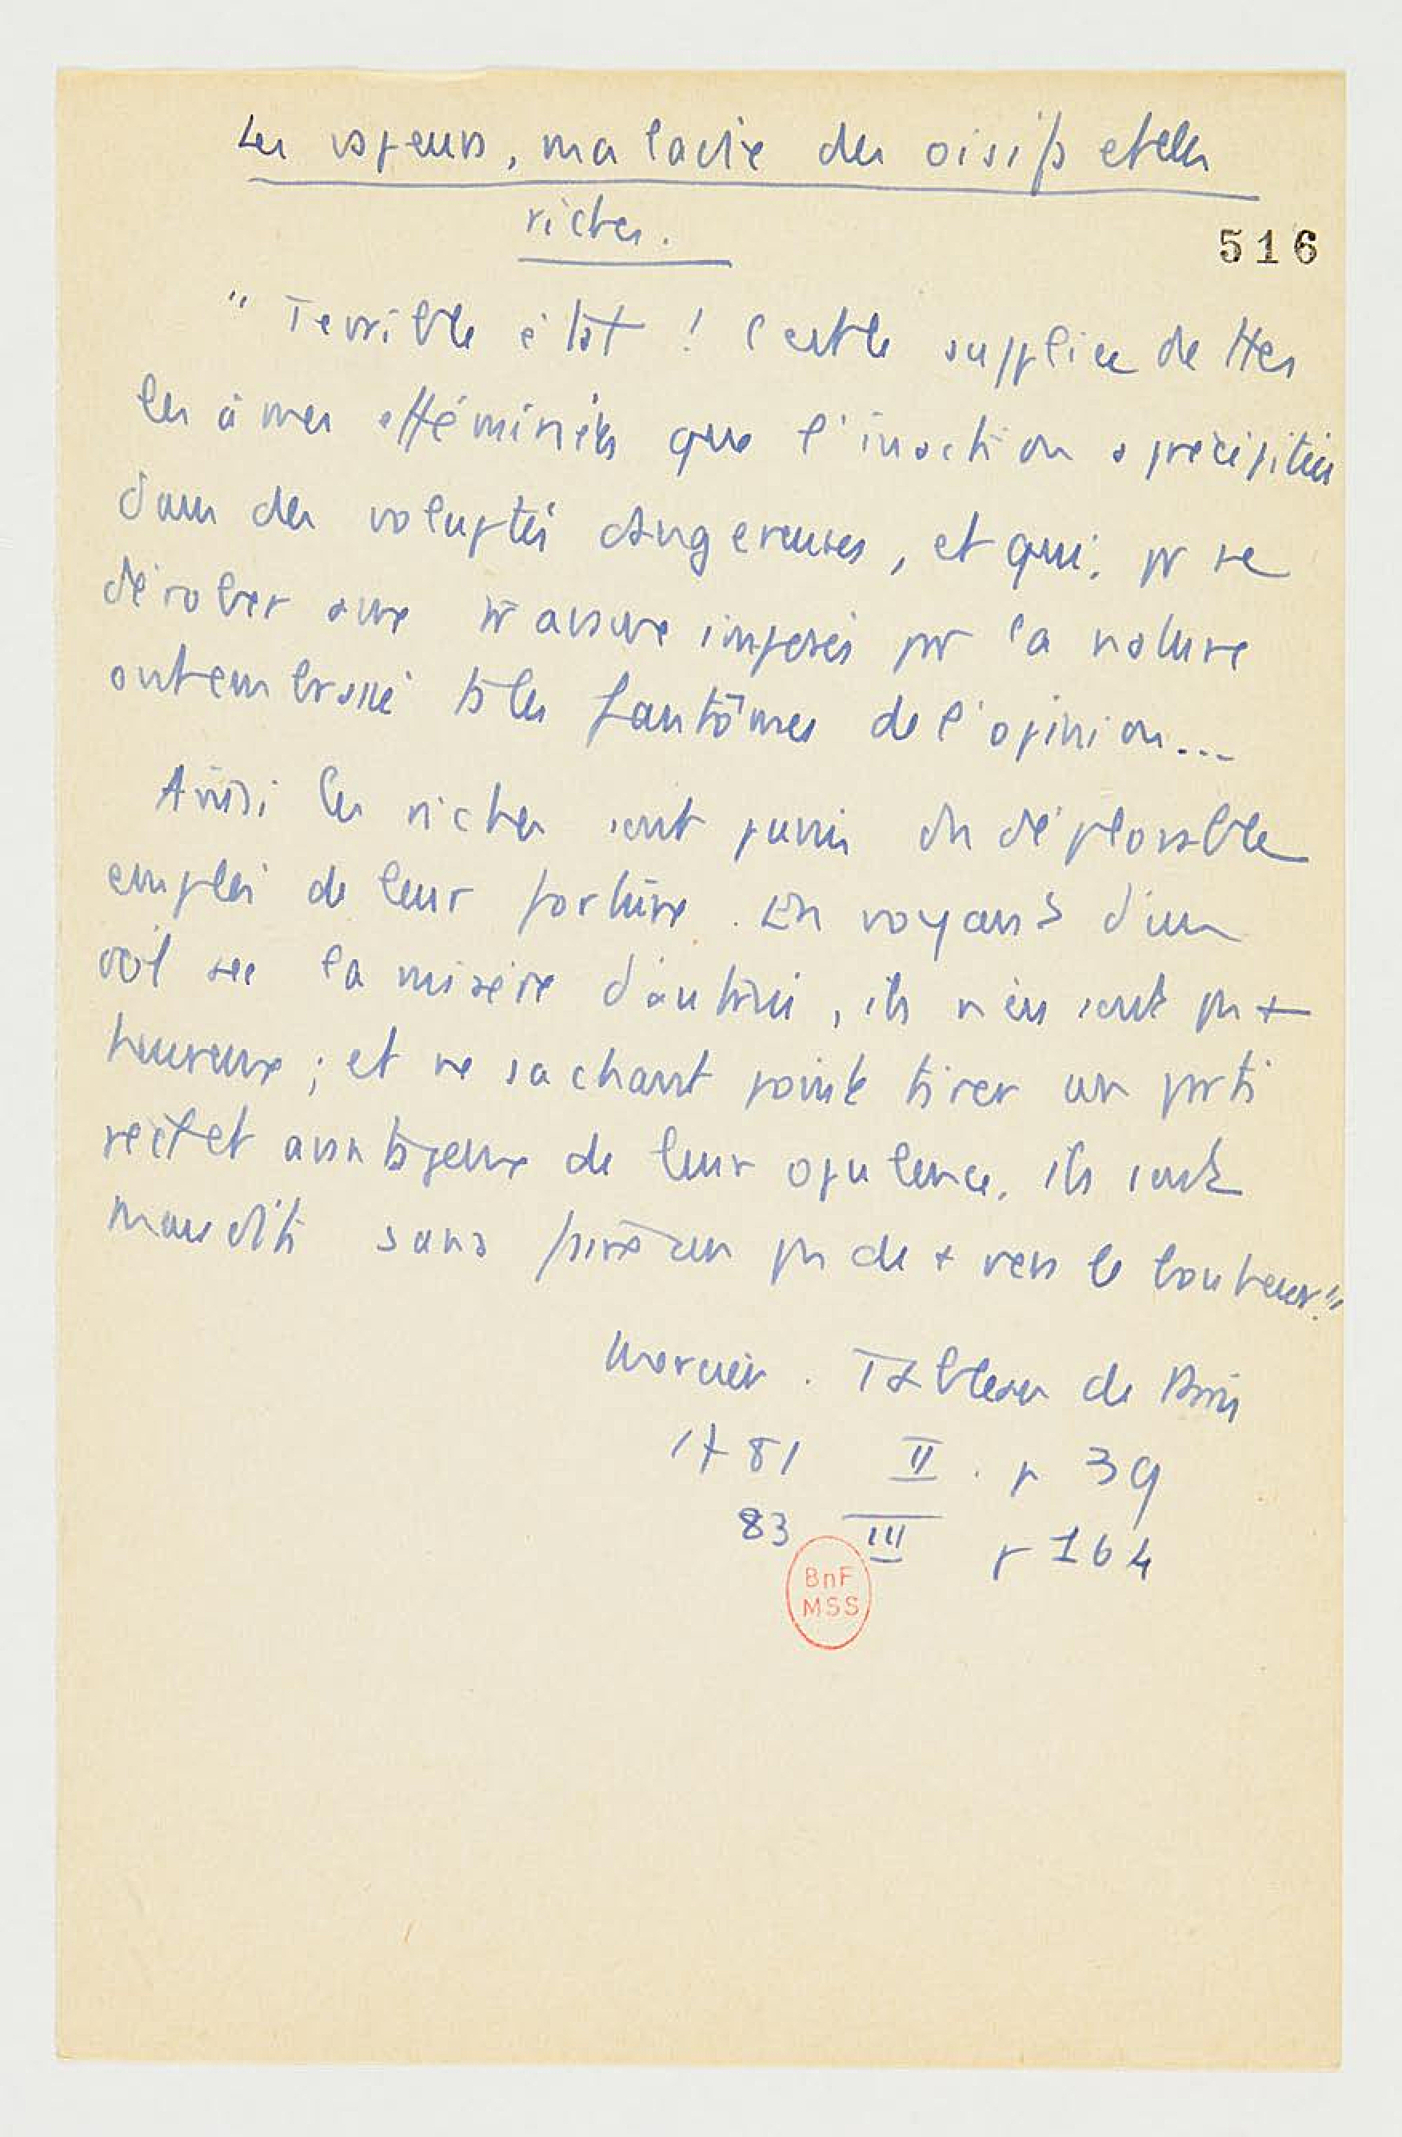 Les vapeurs, maladie des oisifs et des
riches.
516
" Terrible état ! C'est le supplice de ttes
les âmes efféminées que l'inaction a précipitées
dans des voluptés dangereuses, et qui, pr se
dérober aux travaux imposés par la nature
ont embrassé ts les fantômes de l'opinion...
Ainsi les riches sont punis du déplorable
emploi de leur fortune. En voyant d'un
œil sec la misère d'autrui, ils n'en sont pas +
heureux ; et ne sachant point tirer un parti
réel et avantageux de leur opulence, ils sont
maudits sans faire un pas de + vers le bonheur."
Mercier. Tableau de Paris
1781 II. p 39
83 III p 164
BnF
MSS